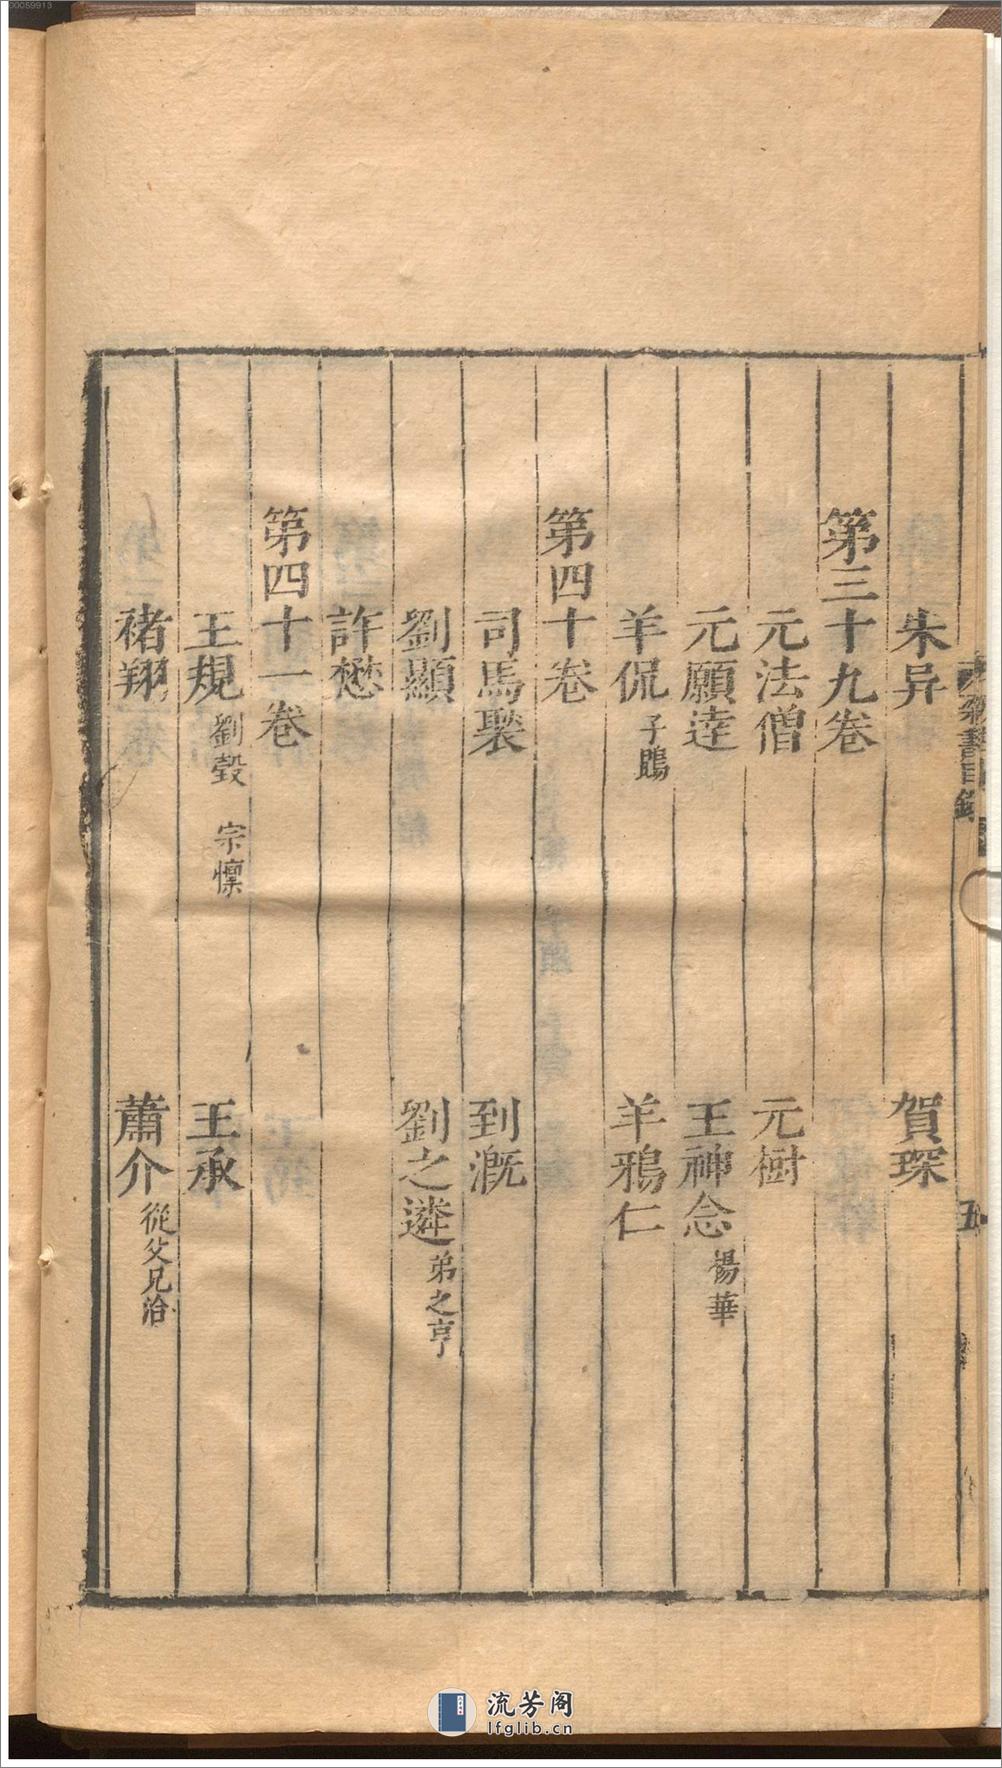 朱异 賀琛
第三十九卷
元法僧 元樹
元願達 王神念 楊華
羊侃 子鵾 羊鴉仁
第四十卷
司馬褧 到溉
劉顯 劉之遴 弟之亨
許懋
第四十一卷
王規 劉瑴 宗懍 王承
褚翔 蕭介 從父兄洽
梁書目錄
五
00059913
流芳阁
lfglib.cn